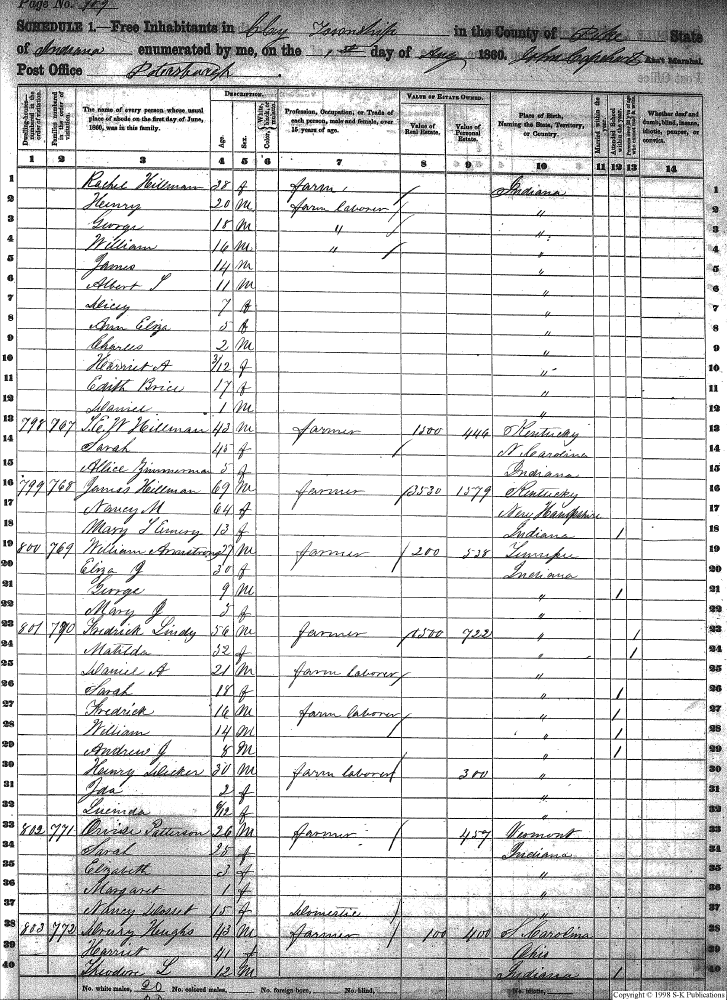 Page No. 909
SCHEDULE 1.—Free Inhabitants in Clay Township in the County of Pike State
of Indiana enumerated by me, on the 1st day of Aug 1860. John Capehart Ass't Marshal.
Post Office Petersburgh
Dwelling-houses numbered in the order of visitation. Families numbered in the order of visitation. The name of every person whose usual place of abode on the first day of June, 1860, was in this family. DESCRIPTION. Age. Sex. Color, Profession, Occupation, or Trade of each person, male and female, over 15 years of age. VALUE OF ESTATE OWNED. Value of Real Estate. Value of Personal Estate. Place of Birth, Naming the State, Territory, or Country. Married within the year. Attended School within the year. Whether deaf and dumb, blind, insane, idiotic, pauper, or convict.
1 2 3 4 5 6 7 8 9 10 11 12 13 14
1 Rachel Hillman 38 f farm Indiana 1
2 Henry 20 M farm laborer " 2
3 George 18 M " " 3
4 William 16 M " " 4
5 James 14 M " 5
6 Albert S 11 M " 6
7 Dicey 7 f " 7
8 Ann Eliza 5 f " 8
9 Charles 2 M " 9
10 Harriet A 3/12 f " 10
11 Edith Brice 17 f " 11
12 Daniel 1 M " 12
13 798 767 Hillman 43 M farmer 1500 446 Kentucky 13
14 Sarah 45 f N Carolina 14
15 Allice Zimmerman 5 f Indiana 15
16 799 768 James Hillman 69 M farmer 3530 1579 Kentucky 16
17 Nancy M 64 f New Hampshire 17
18 Mary S Emery 13 f Indiana 1 18
19 800 769 William Armstrong 27 M farmer 200 538 19
20 Eliza J 30 f Indiana 20
21 George 9 M " 1 21
22 Mary J 3 f " 22
23 801 770 Fredrick Lindy 56 M farmer 1500 722 " 1 23
24 Matilda 32 f " 1 24
25 Daniel A 21 M farm laborer " 25
26 Sarah 18 f " 1 26
27 Fredrick 16 M farm laborer " 1 27
28 William 14 M " 1 28
29 Andrew J 8 M " 1 29
30 Henry Decker 30 M farm laborer 300 " 30
31 Ida 2 f " 31
32 Lucinda 6/12 f " 32
33 802 771 Patterson 26 M farmer 457 Vermont 33
34 Sarah 25 f Indiana 34
35 Elizabeth 3 f " 35
36 Margaret 1 f " 36
37 Nancy Dosset 15 f Domestic " 37
38 803 772 Drury Hughs 43 M farmer 100 400 S Carolina 38
39 Harriet 41 f Ohio 39
40 Theodore L 12 M Indiana 1 40
No. white males, 20 No. colored males, No. foreign born, No. blind, No. idiotic,
Copyright © 1998 S-K Publications